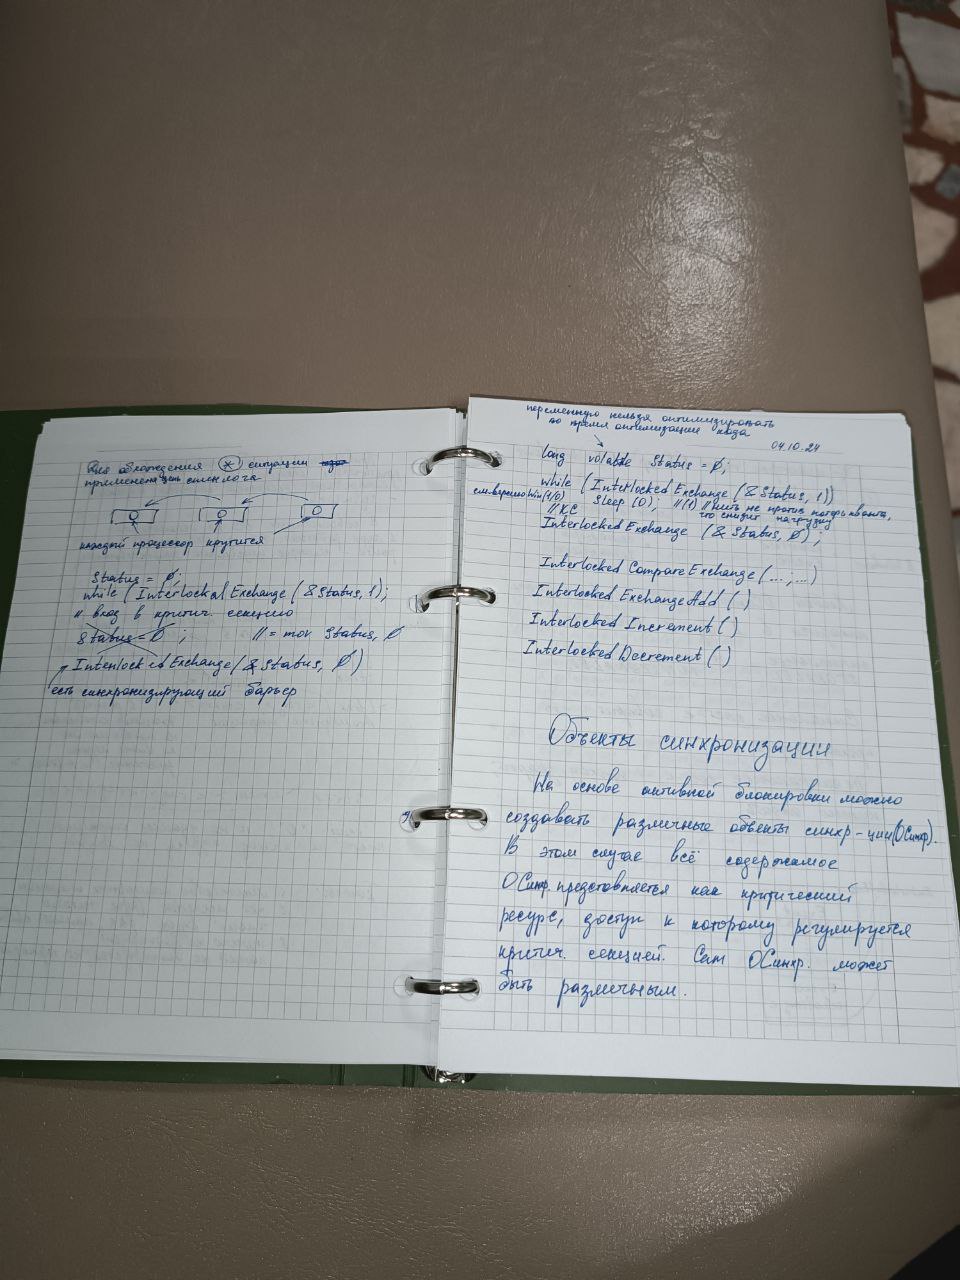 Для обхождения (*) ситуации
применена цепь спинлога
каждый процессор крутится
Status = 0;
while (Interlocked Exchange (&Status, 1);
// вход в критич. секцию
Status = 0 ; // = mov Status, 0
Interlocked Exchange (& Status, 0)
есть синхронизирующий барьер
переменную нельзя оптимизировать
во время оптимизации кода
04.10.24
long volatile Status = 0;
while (Interlocked Exchange (&Status, 1))
Sleep (0); //(1) // нить не против потерь кванта,
что снизит нагрузку
// КС
Interlocked Exchange (& Status, 0);
Interlocked CompareExchange (...;...)
Interlocked ExchangeAdd ( )
Interlocked Increment ( )
Interlocked Decrement ( )
Объекты синхронизации
На основе активной блокировки можно
создавать различные объекты синхр-ции (ОСинхр).
В этом случае всё содержимое
ОСинхр. представляется как критический
ресурс, доступ к которому регулируется
критич. секцией. Сам ОСинхр. может
быть различным.